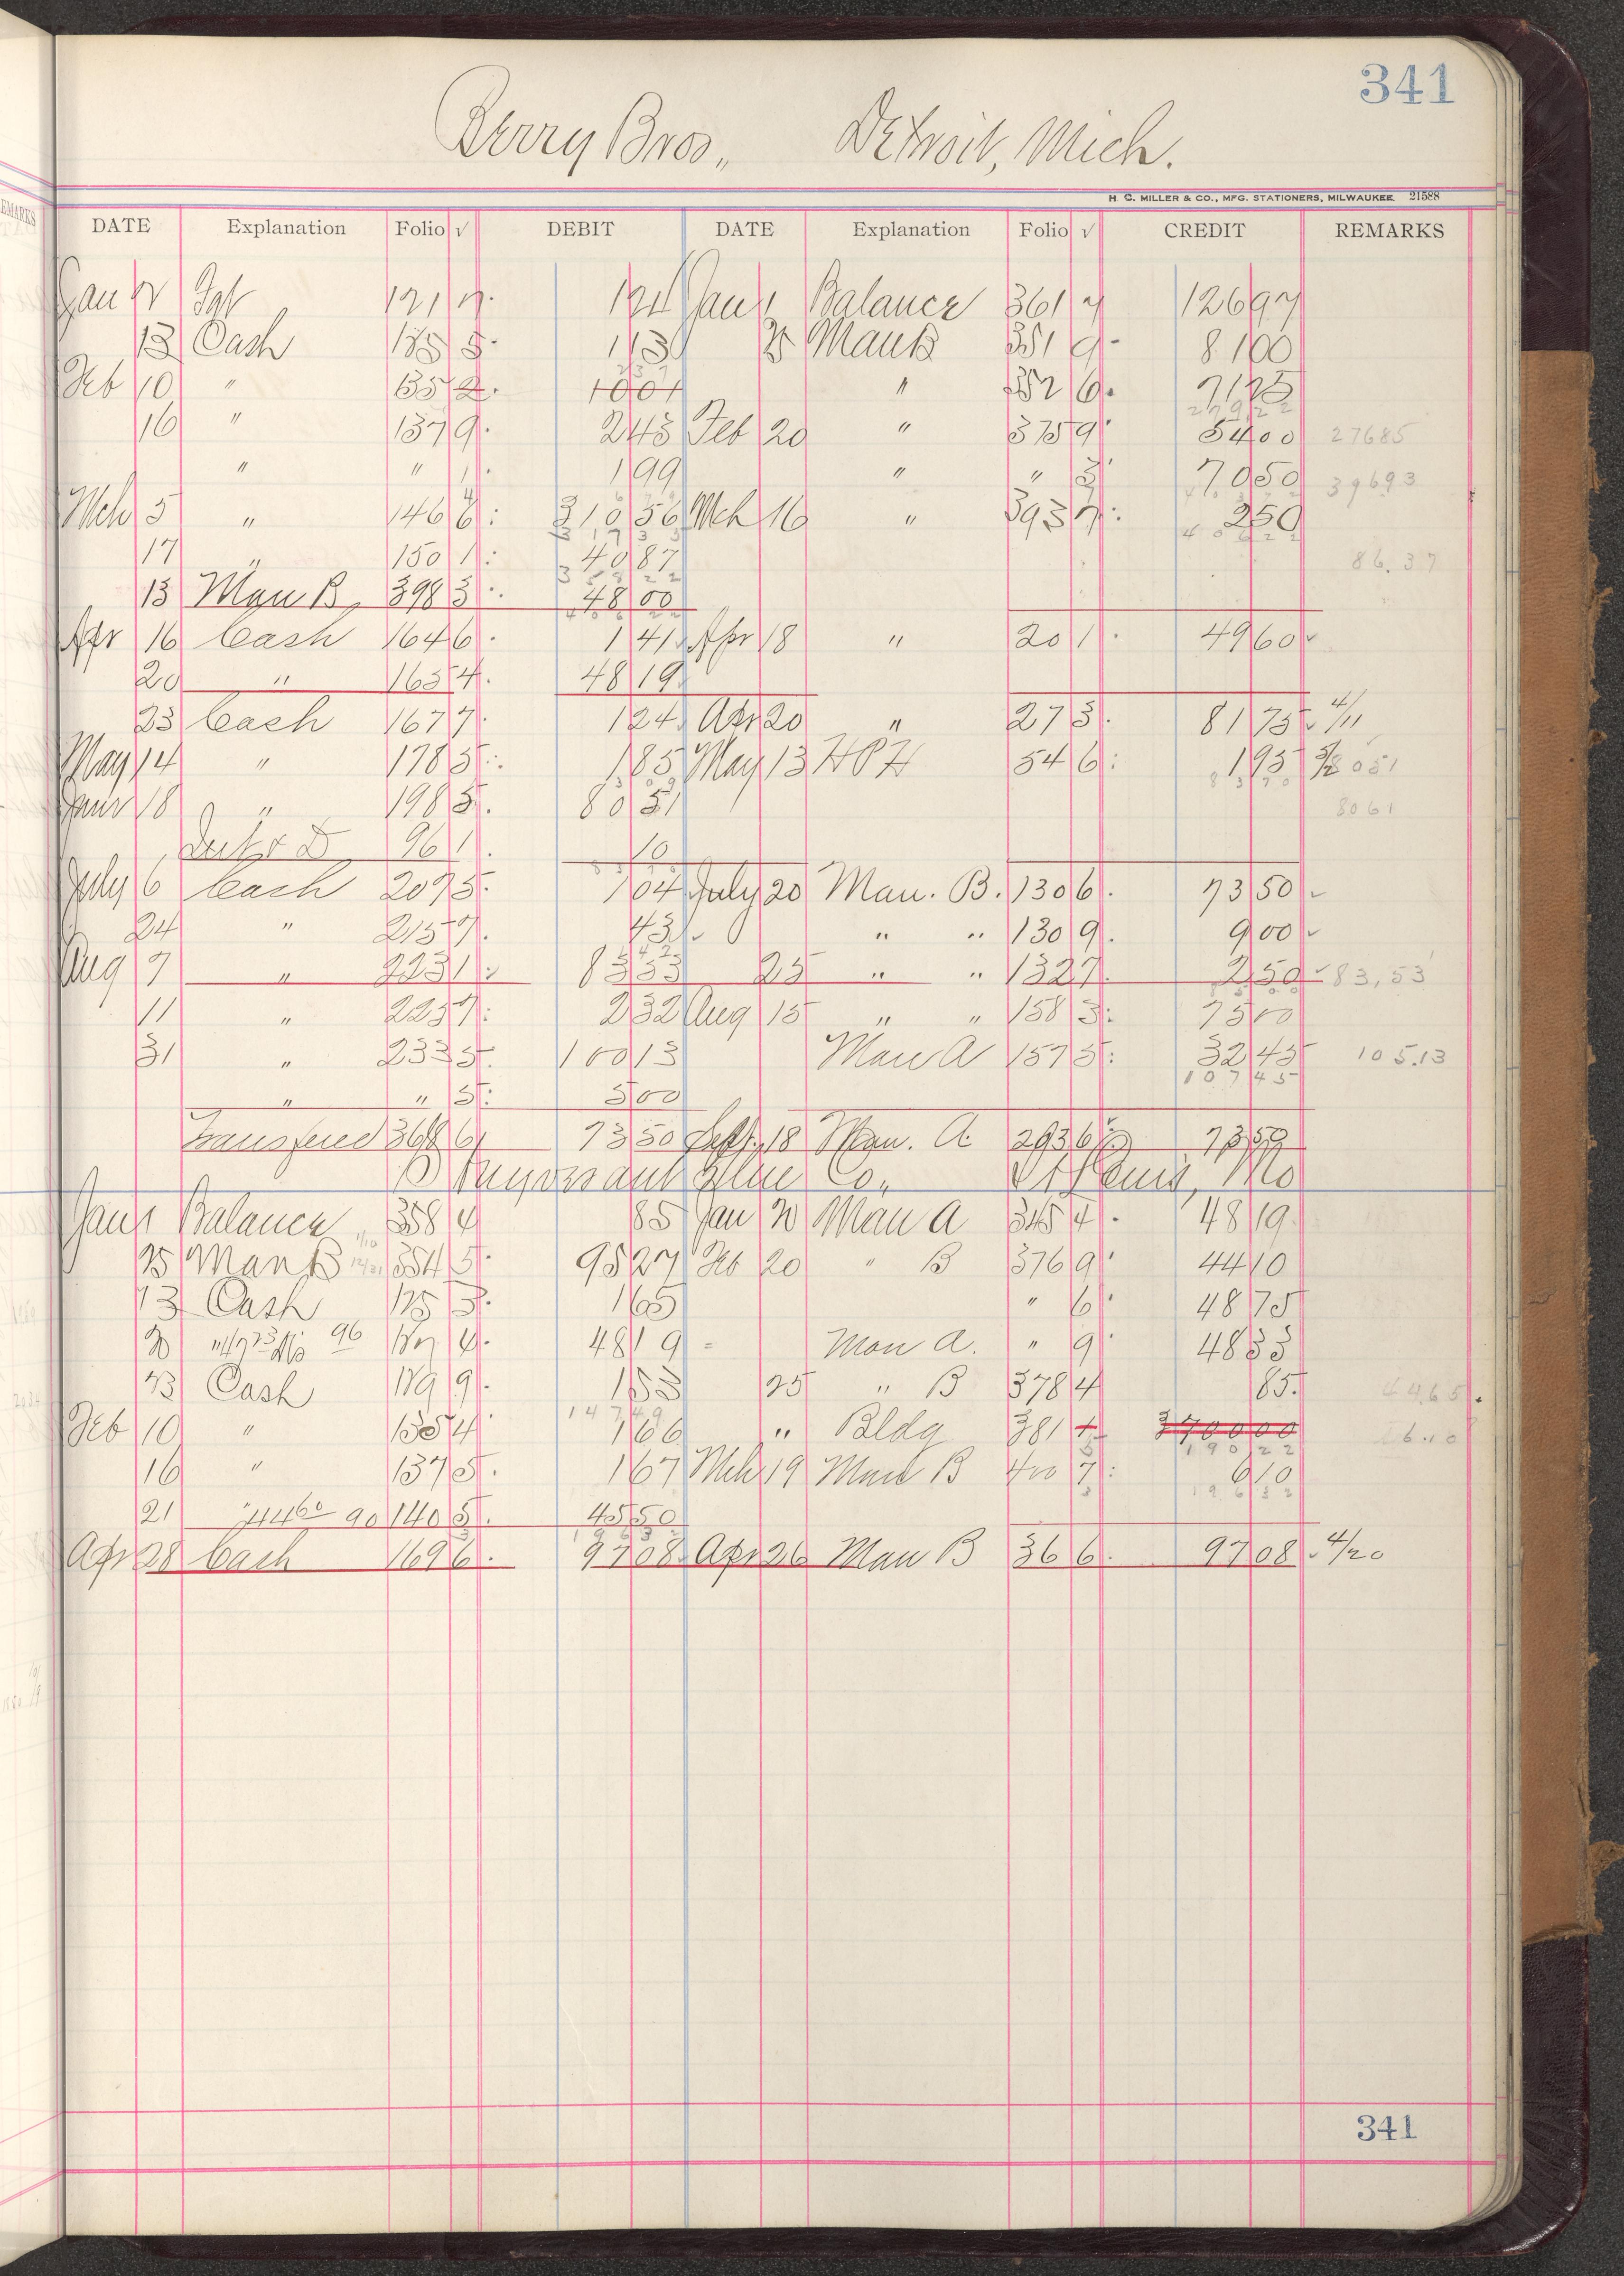 341
Berry Bros,, Detroit, Mich.
H. C. MILLER & CO., MFG. STATIONERS, MILWAUKEE 21588
DATE Explanation Folio √ DEBIT DATE Explanation Folio √ CREDIT REMARKS
Jan 121 7 124 Jan 1 Balance 361 7 12697
13 Cash 8 113 Man B 351 9 8100
Feb 10 " 135 2 1001 " 352 6 7125
16 " 137 9 243 Feb 20 " 375 9 5400 27685
" " 1 199 " " 3 7050 39693
Mch 5 " 146 6 31056 Mch 16 " 393 7 250
17 " 150 1 4087 86.37
13 Man B 398 3 4800
Apr 16 Cash 164 6 141 Apr 18 " 20 1 4960
20 " 165 4 4819
23 Cash 167 7 124 Apr 20 " 27 3 8175 4/11
May 14 " 178 5 185 May 13 H P H 54 6 195 8051
June 18 " 198 5 8051 8061
96 1 10
July 6 Cash 207 5 104 July 20 Man. B. 130 6 7350
24 " 215 7 43 " " 130 9 900
Aug 7 " 223 1 8353 25 " " 132 7 250 83,53
11 " 225 7 232 Aug 15 " " 158 3 7500
31 " 233 5 10013 Man A 157 5 3245 105.13
" " 5 500 10745
Transfered 368 6 7350 Sept. 18 Man. A. 293 6 7350
Stuyvesant Co., St Louis, Mo
Jan 1 Balance 358 4 85 Jan Man A 345 4 4819
Man B 354 5 9527 Feb 20 " B 376 9 4410
13 Cash 165 " 6 4875
96 4 4819 Man A. " 9 4833
23 Cash 9 153 25 " B 378 4 85
14749
Feb 10 " 135 4 166 " Bldg 381 370000
19022
16 " 137 5 167 Mch 19 Man B 400 7 610
21 4460 90 140 5 4550
Apr 28 Cash 169 6 9708 Apr 26 Man B 36 6 9708 4/20
341